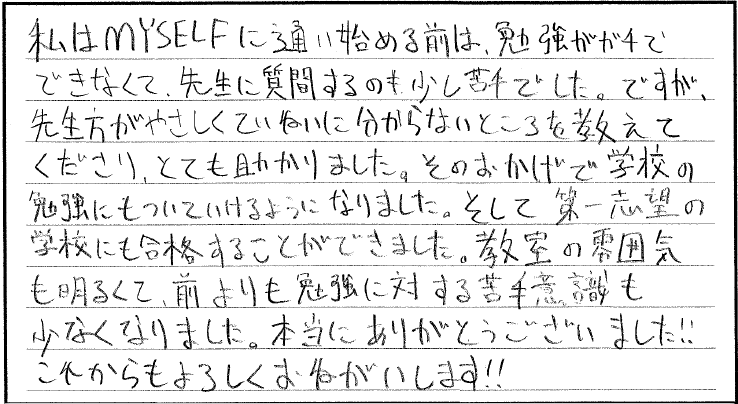 私はMYSELFに通い始める前は、勉強がガチで
できなくて、先生に質問するのも少し苦手でした。ですが、
先生方がやさしくていねいに分からないところを教えて
くださり、とても助かりました。そのおかげで学校の
勉強にもついていけるようになりました。そして第一志望の
学校にも合格することができました。教室の雰囲気
も明るくて、前よりも勉強に対する苦手意識も
少なくなりました。本当にありがとうございました!!
これからもよろしくおねがいします!!